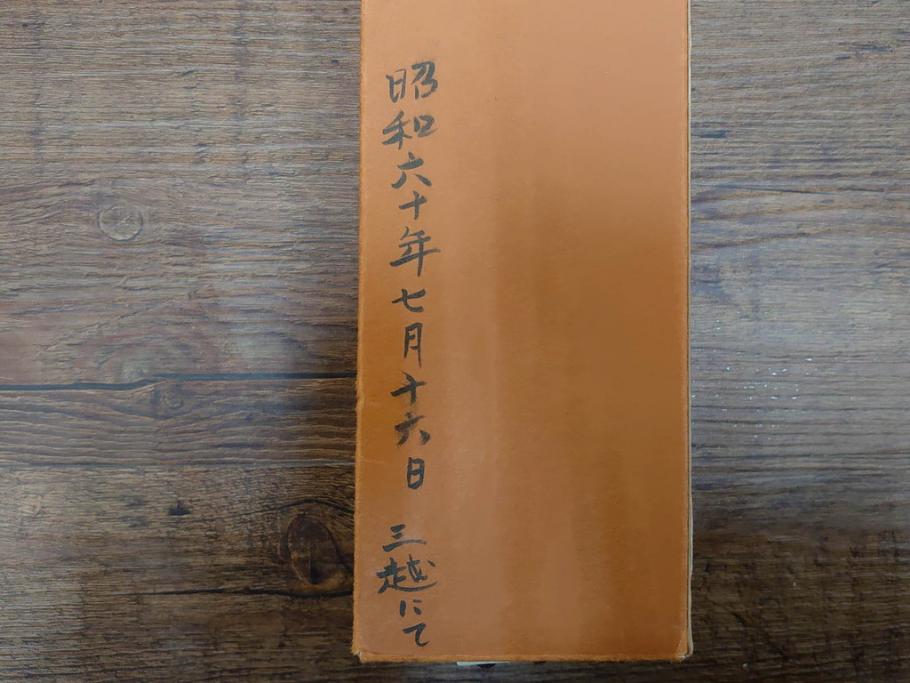 昭和六十年七月十六日 三越にて